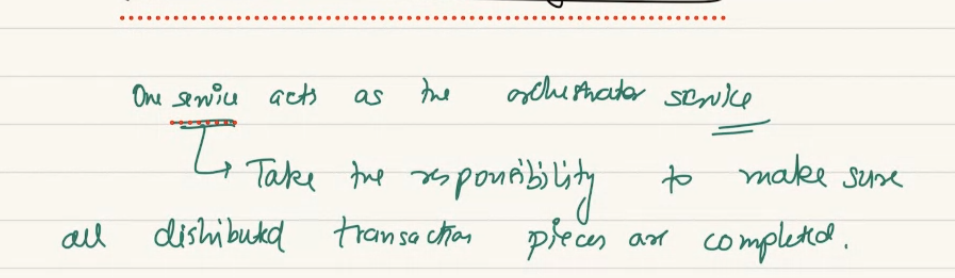 One service acts as the orchestrator service
Take the responsibility to make sure
all distributed transaction pieces are completed.